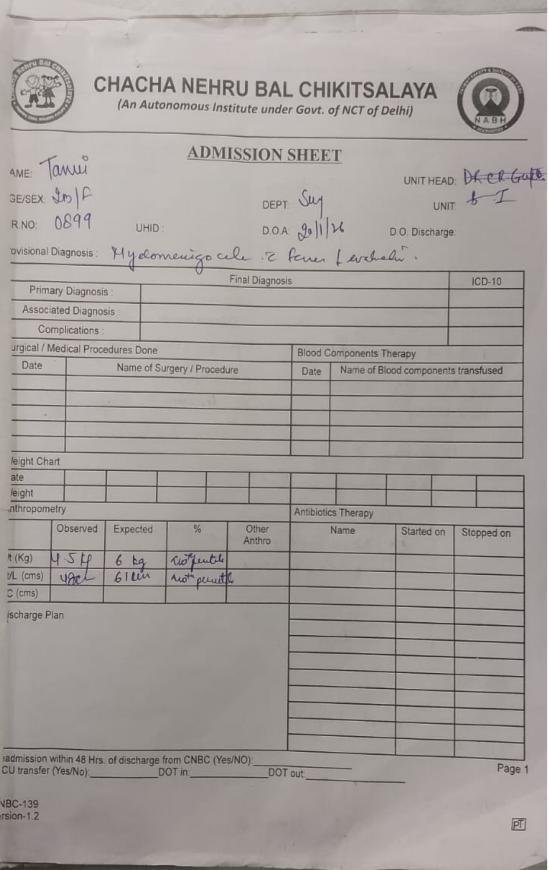 CHACHA NEHRU BAL CHIKITSALAYA
(An Autonomous Institute under Govt. of NCT of Delhi)
NABH
ADMISSION SHEET
AME: Tanvi
UNIT HEAD: Dr CR Gupta
GE/SEX: /F
DEPT:
UNIT I
R.NO: 0899
UHID :
D.O.A: 20/1/26
D.O. Discharge:
ovisional Diagnosis :
Final Diagnosis ICD-10
Primary Diagnosis :
Associated Diagnosis :
Complications :
urgical / Medical Procedures Done Blood Components Therapy
Date Name of Surgery / Procedure Date Name of Blood components transfused
eight Chart
ate
eight
nthropometry Antibiotics Therapy
Observed Expected % Other Anthro Name Started on Stopped on
t (Kg) 6 kg
t/L (cms) 61 cm
C (cms)
ischarge Plan
eadmission within 48 Hrs. of discharge from CNBC (Yes/NO):
CU transfer (Yes/No): DOT in: DOT out:
Page 1
NBC-139
ersion-1.2
PT